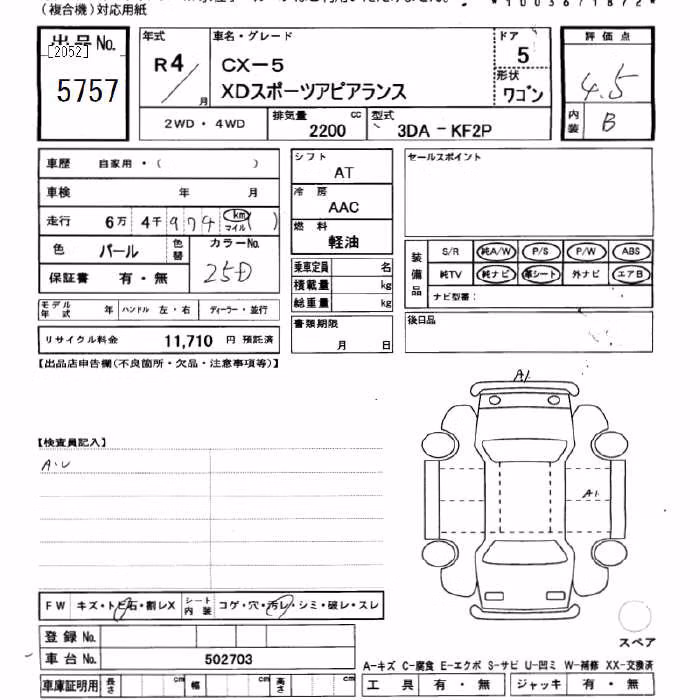 （複合機）対応用紙
出品No.
[2052]
5757
年式
R4
月
車名・グレード
CX-5
XDスポーツアピアランス
ドア
5
形状
ワゴン
評価点
4.5
内装 B
2WD・4WD
排気量 2200 cc
型式 3DA-KF2P
車歴 自家用・（ ）
車検 年 月
走行 6万 4千 9 7 4 km マイル ( )
色 パール 色替
カラーNo. 25D
保証書 有・無
モデル年式 年 ハンドル 左・右 ディーラー・並行
リサイクル料金 11,710 円 預託済
シフト
AT
冷房
AAC
燃料
軽油
乗車定員 名
積載量 kg
総重量 kg
書類期限
月 日
セールスポイント
装備品
S/R 純A/W P/S P/W ABS
純TV 純ナビ 革シート 外ナビ エアB
ナビ型番：
後日品
【出品店申告欄(不良箇所・欠品・注意事項等)】
【検査員記入】
A.U
A1
A1
FW キズ・トビ石・割レX シート内装 コゲ・穴・汚レ・シミ・破レ・スレ
登録No.
車台No. 502703
車庫証明用 長さ cm 幅 cm 高さ cm
スペア
A-キズ C-腐食 E-エクボ S-サビ U-凹ミ W-補修 XX-交換済
工具 有・無 ジャッキ 有・無